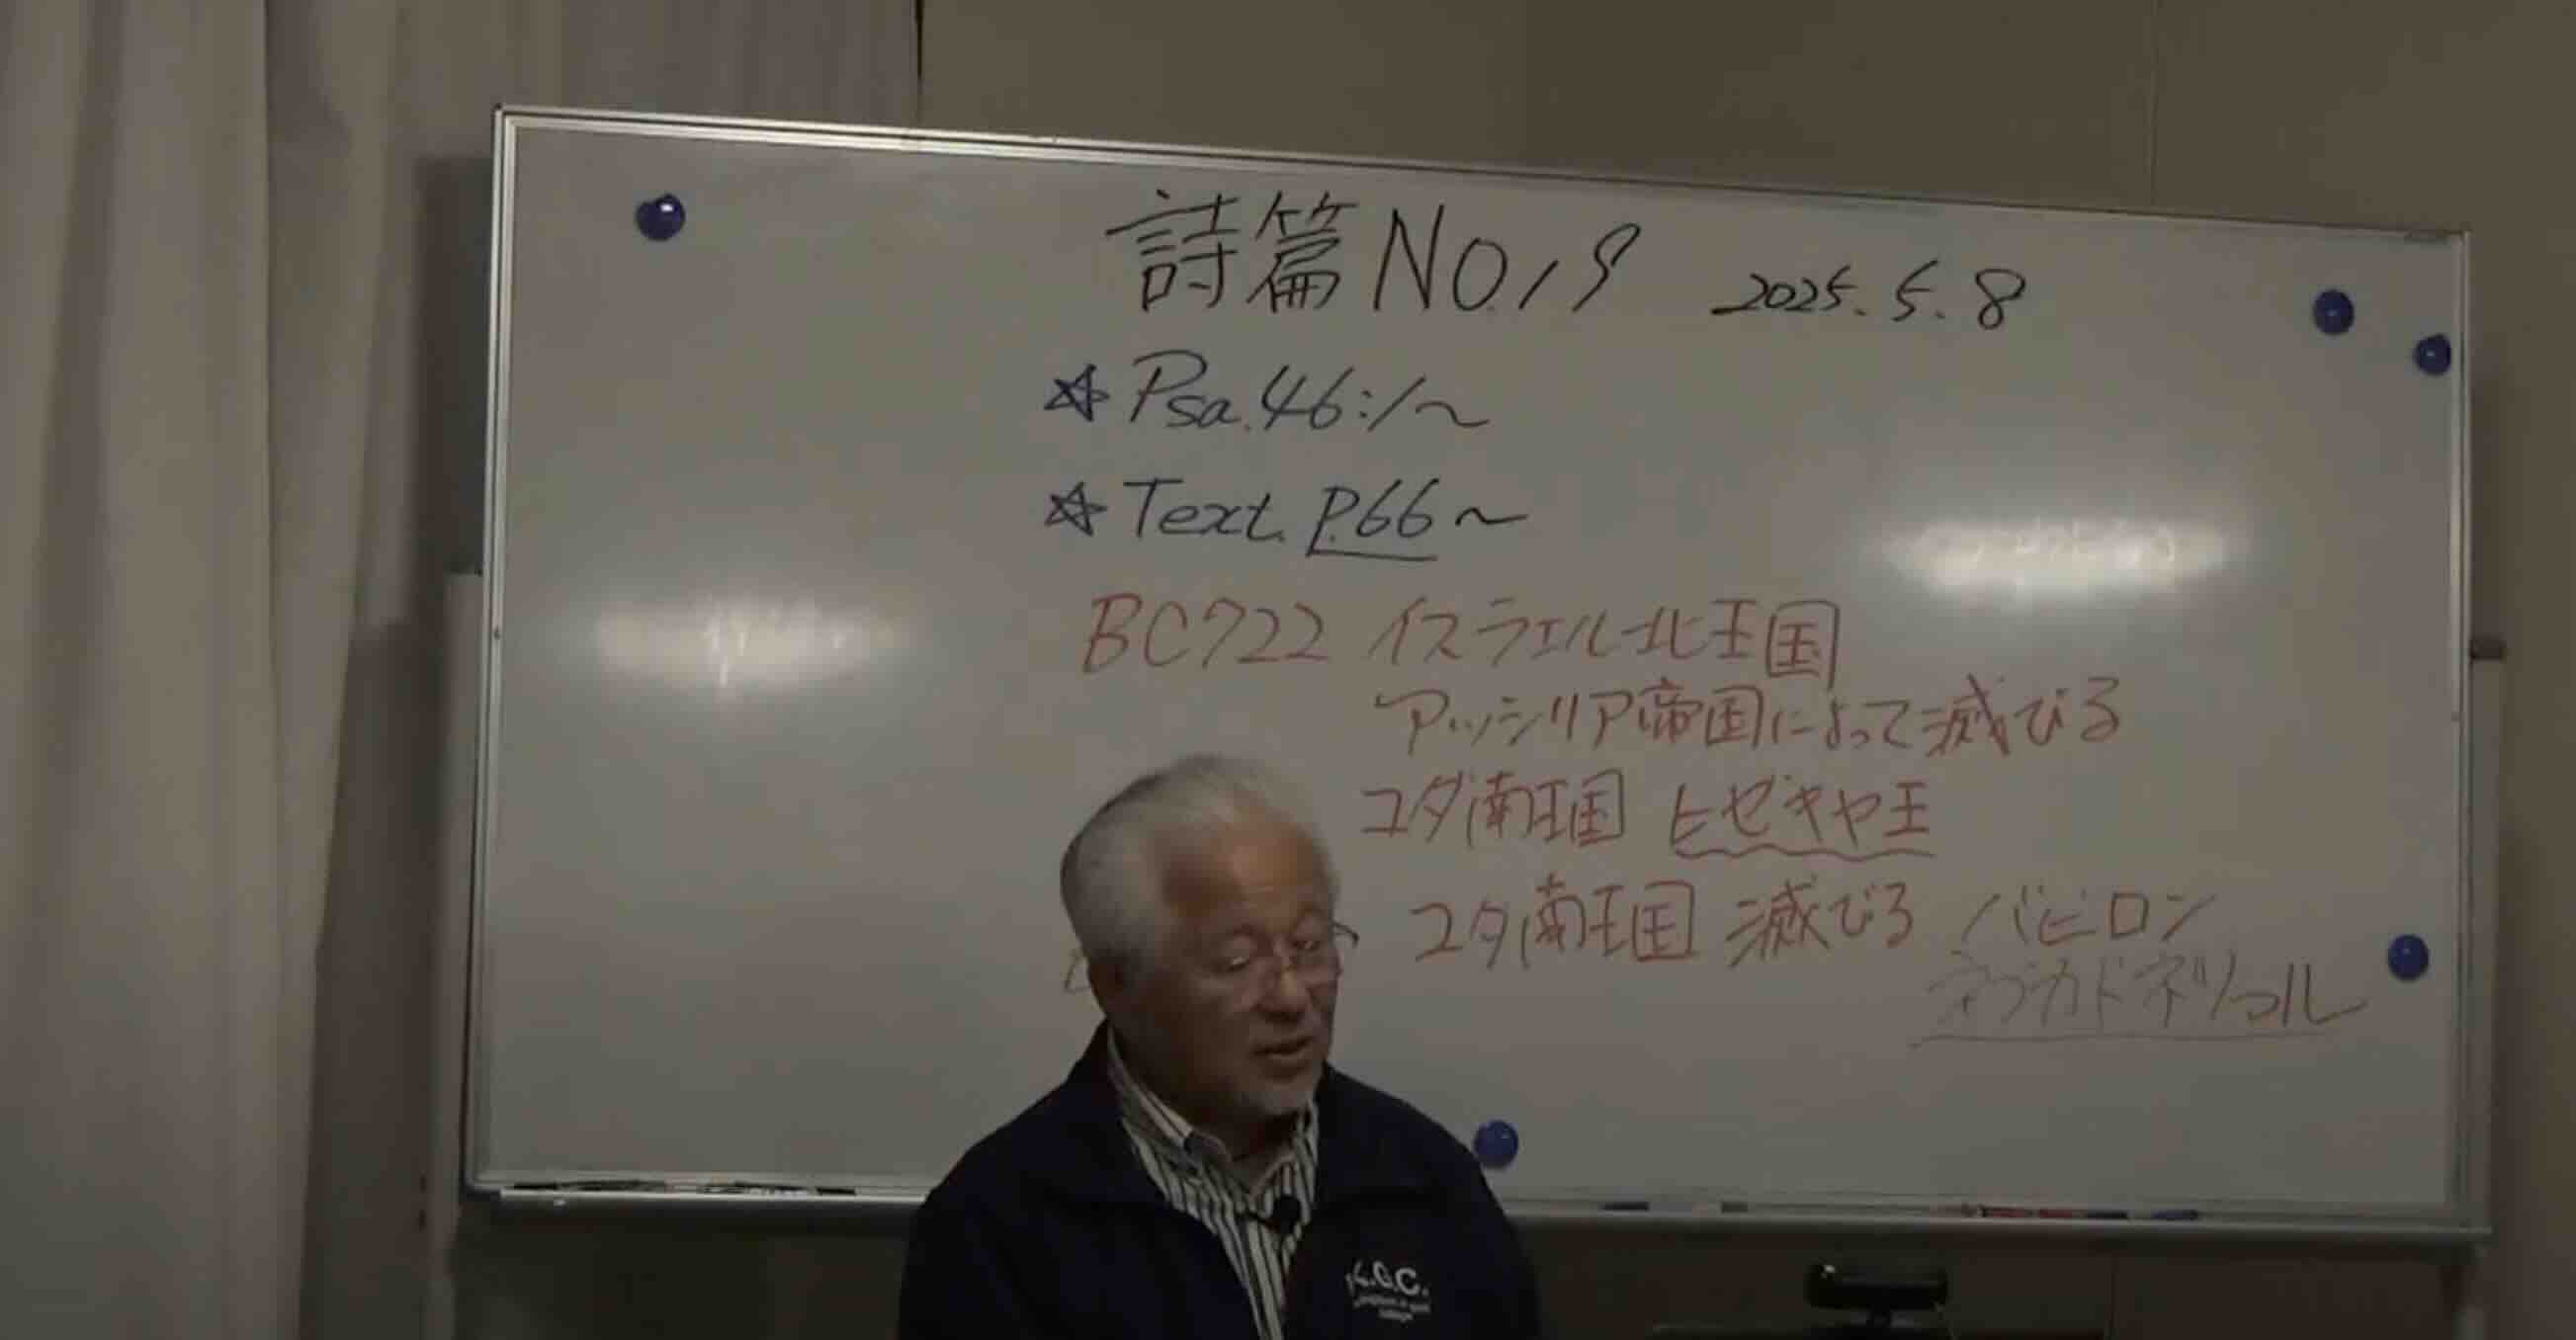 詩篇 NO.19 2025.5.8
☆ Psa.46:1~
☆ Text. P.66~
BC722 イスラエル北王国
アッシリア帝国によって滅びる
ユダ南王国 ヒゼキヤ王
ユダ南王国 滅びる バビロン
ネブカドネツァル
K.G.C.